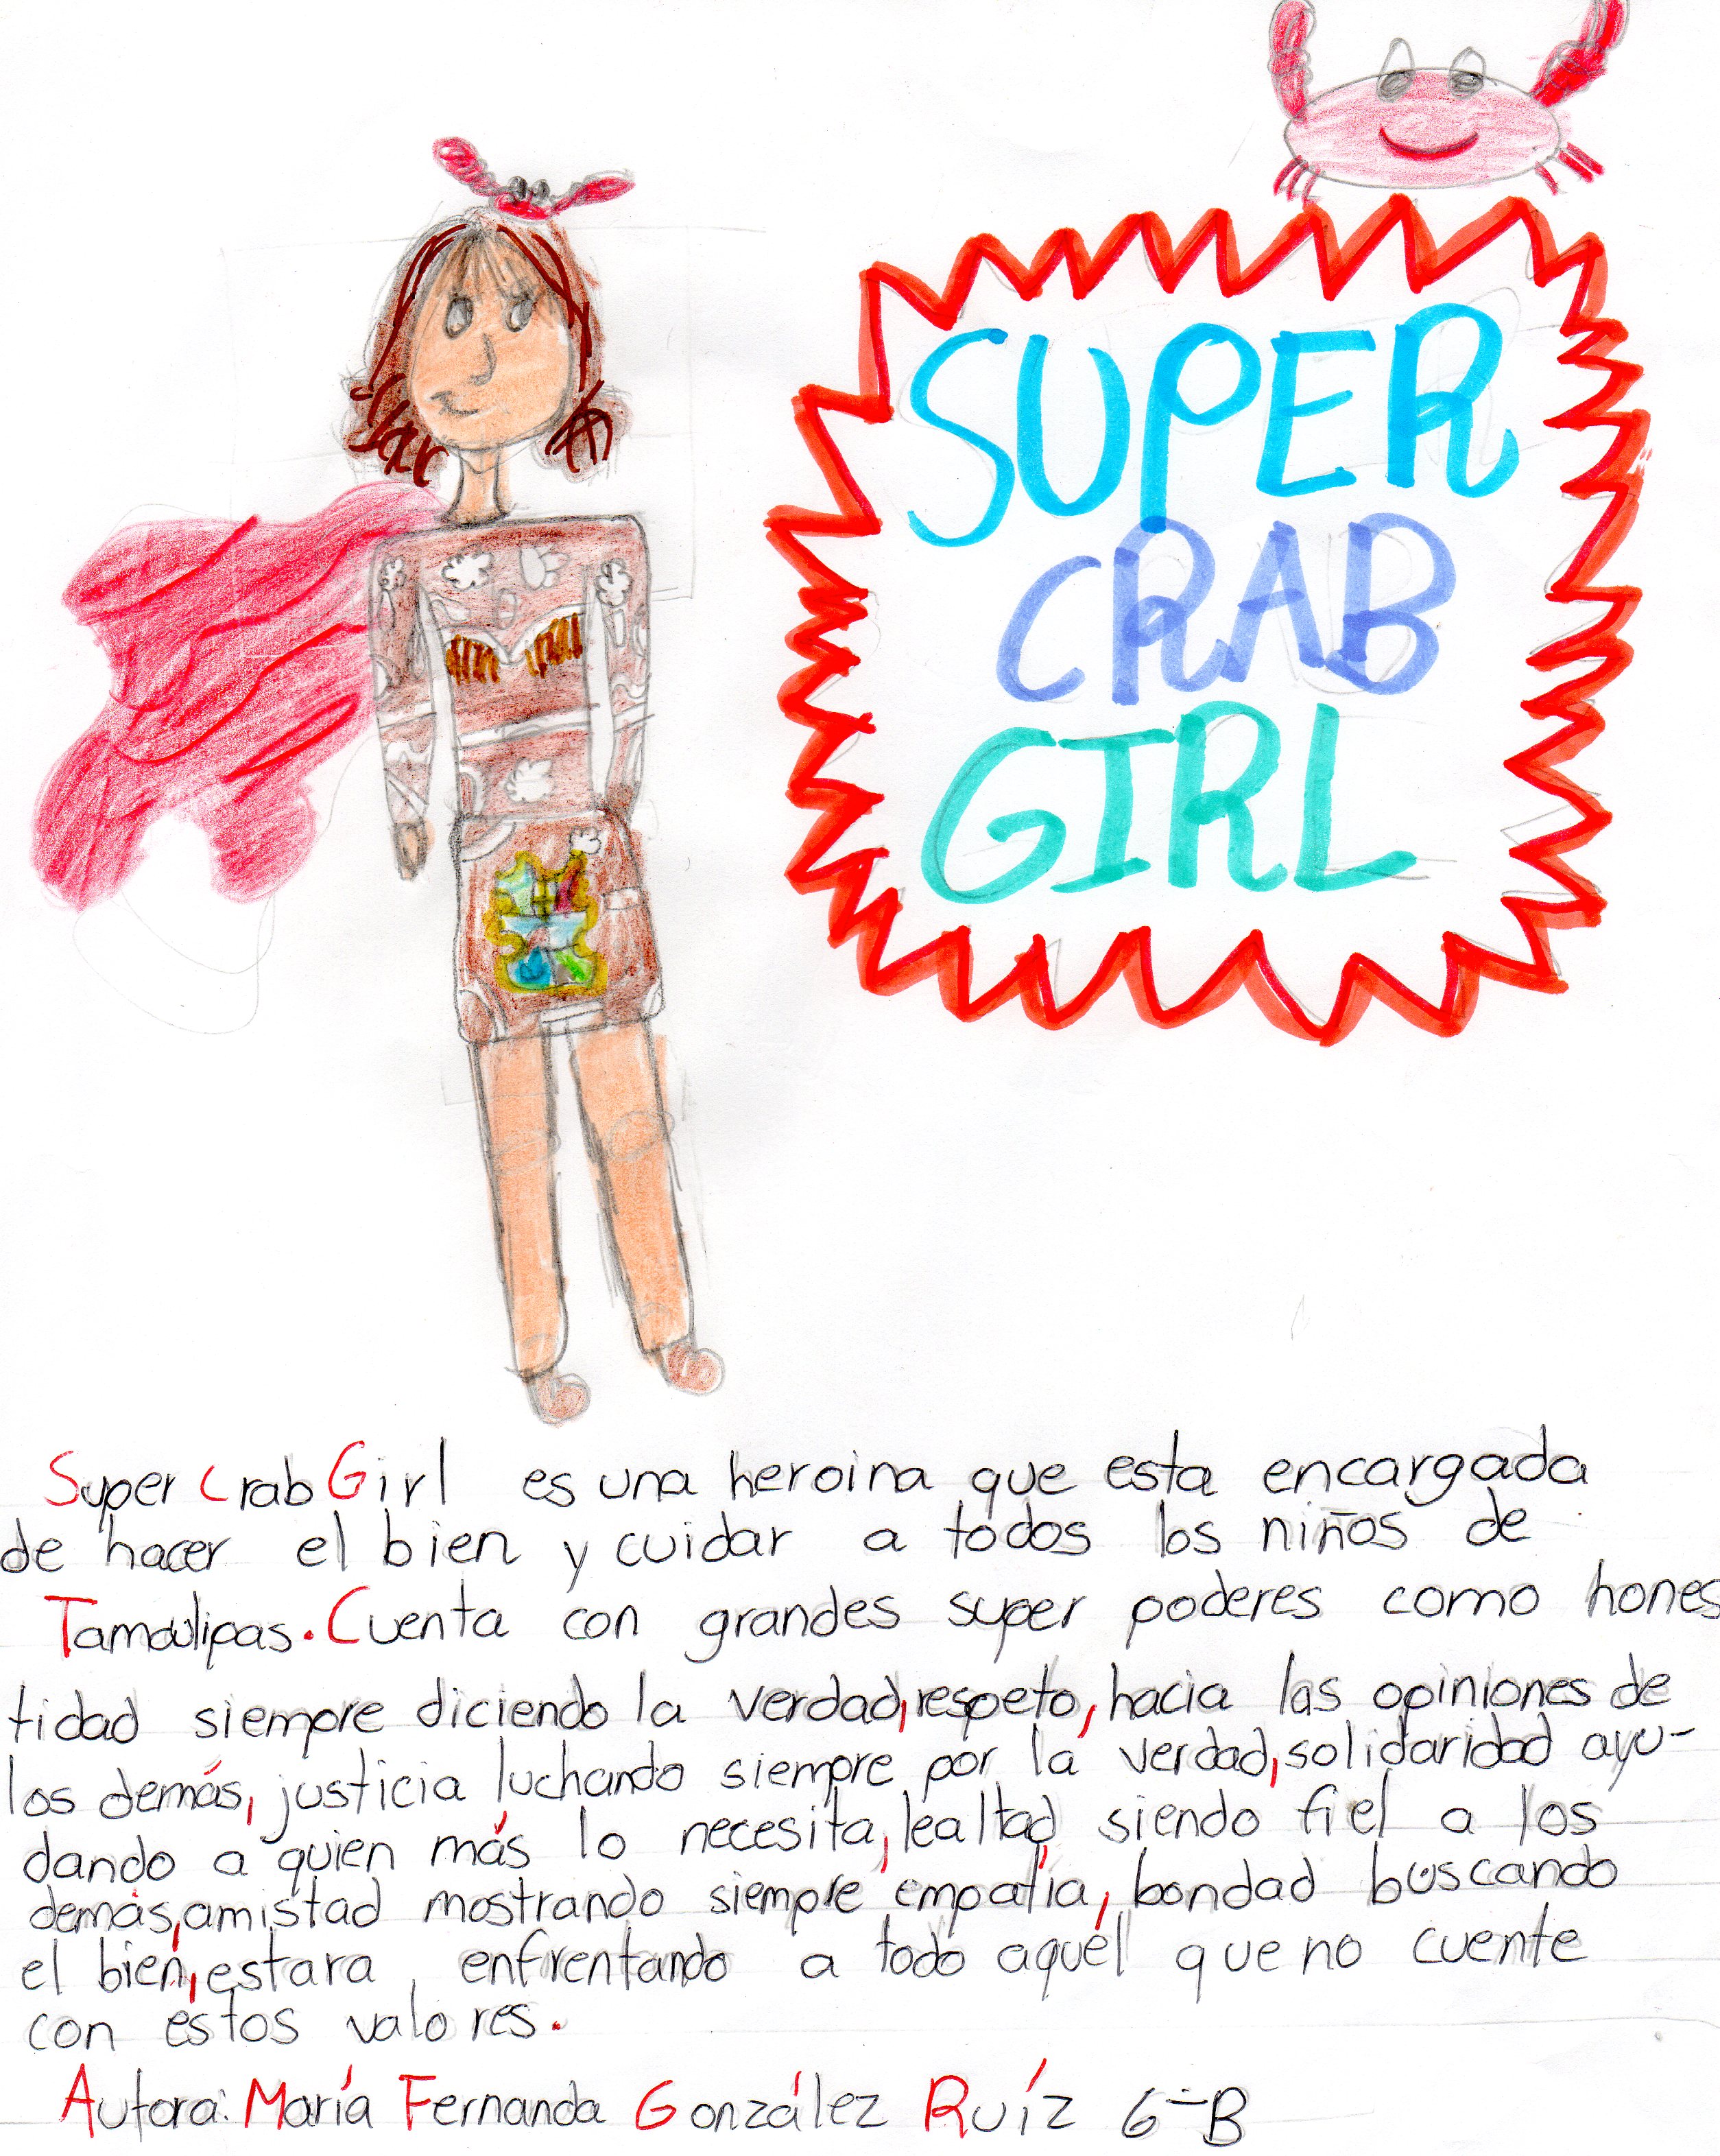 SUPER
CRAB
GIRL
Super Crab Girl es una heroina que esta encargada
de hacer el bien y cuidar a todos los niños de
Tamaulipas. Cuenta con grandes super poderes como hones
tidad siempre diciendo la verdad, respeto, hacia las opiniones de
los demás, justicia luchando siempre por la verdad, solidaridad ayu-
dando a quien más lo necesita, lealtad, siendo fiel a los
demás, amistad mostrando siempre empatía, bondad buscando
el bien, estara enfrentando a todo aquél que no cuente
con estos valores.
Autora: María Fernanda González Ruíz 6-B